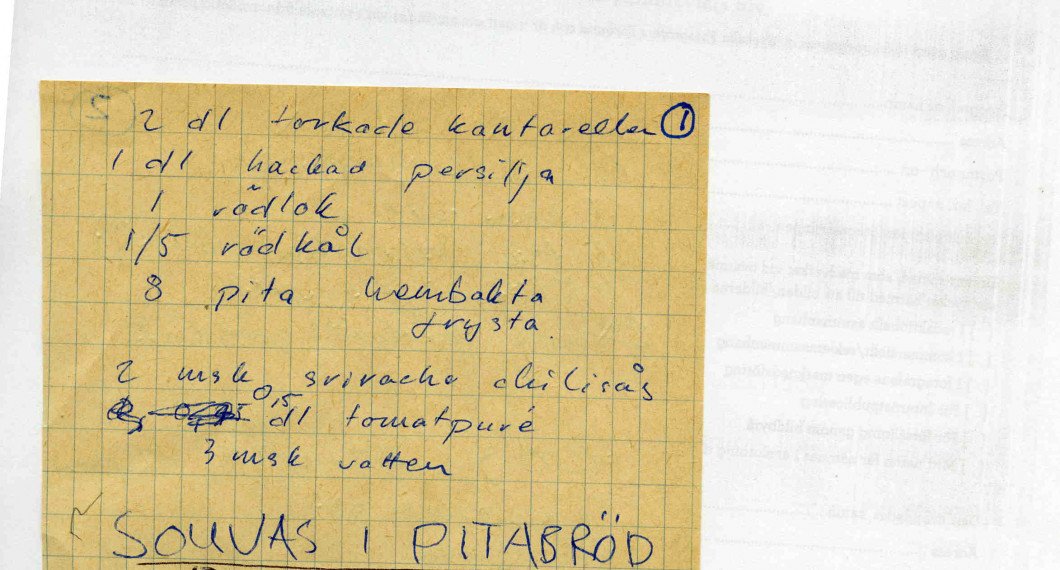 2 dl torkade kantareller ①
1 dl hackad persilja
1 rödlök
1/5 rödkål
8 pita hembakta
frysta.
2 msk sriracha chilisås
0,5 dl tomatpuré
3 msk vatten
SOUVAS I PITABRÖD